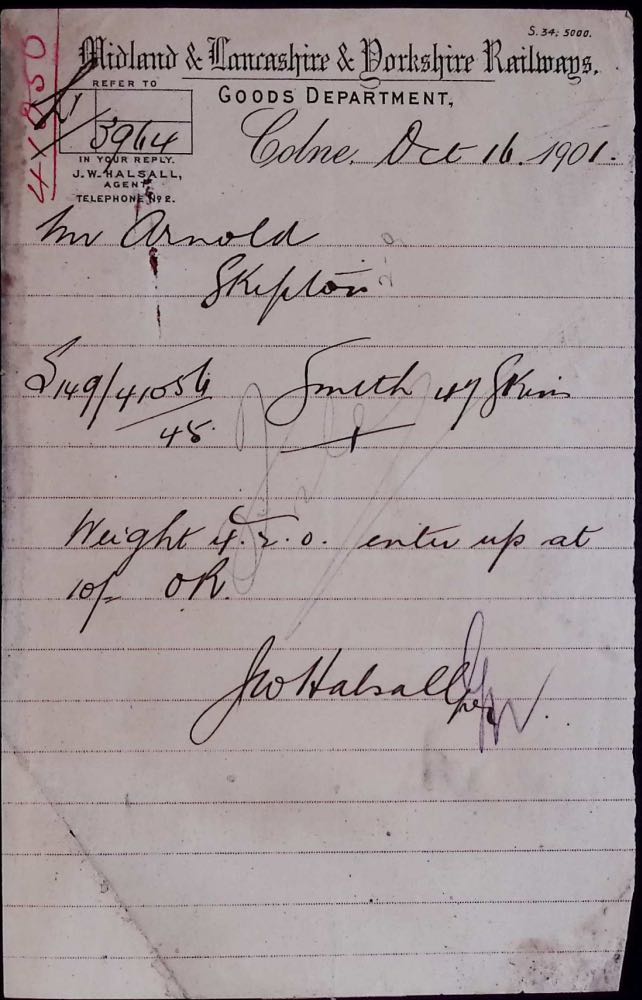 S. 34; 5000.
Midland & Lancashire & Yorkshire Railways.
GOODS DEPARTMENT,
REFER TO
3964
IN YOUR REPLY.
J. W. HALSALL,
AGENT
TELEPHONE Nº 2.
Colne, Oct 16. 1901.
Mr Arnold
Skipton
Smith 47 Skins
45
Weight 4.2.0. enter up at
10/- OR.
JW Halsall
per